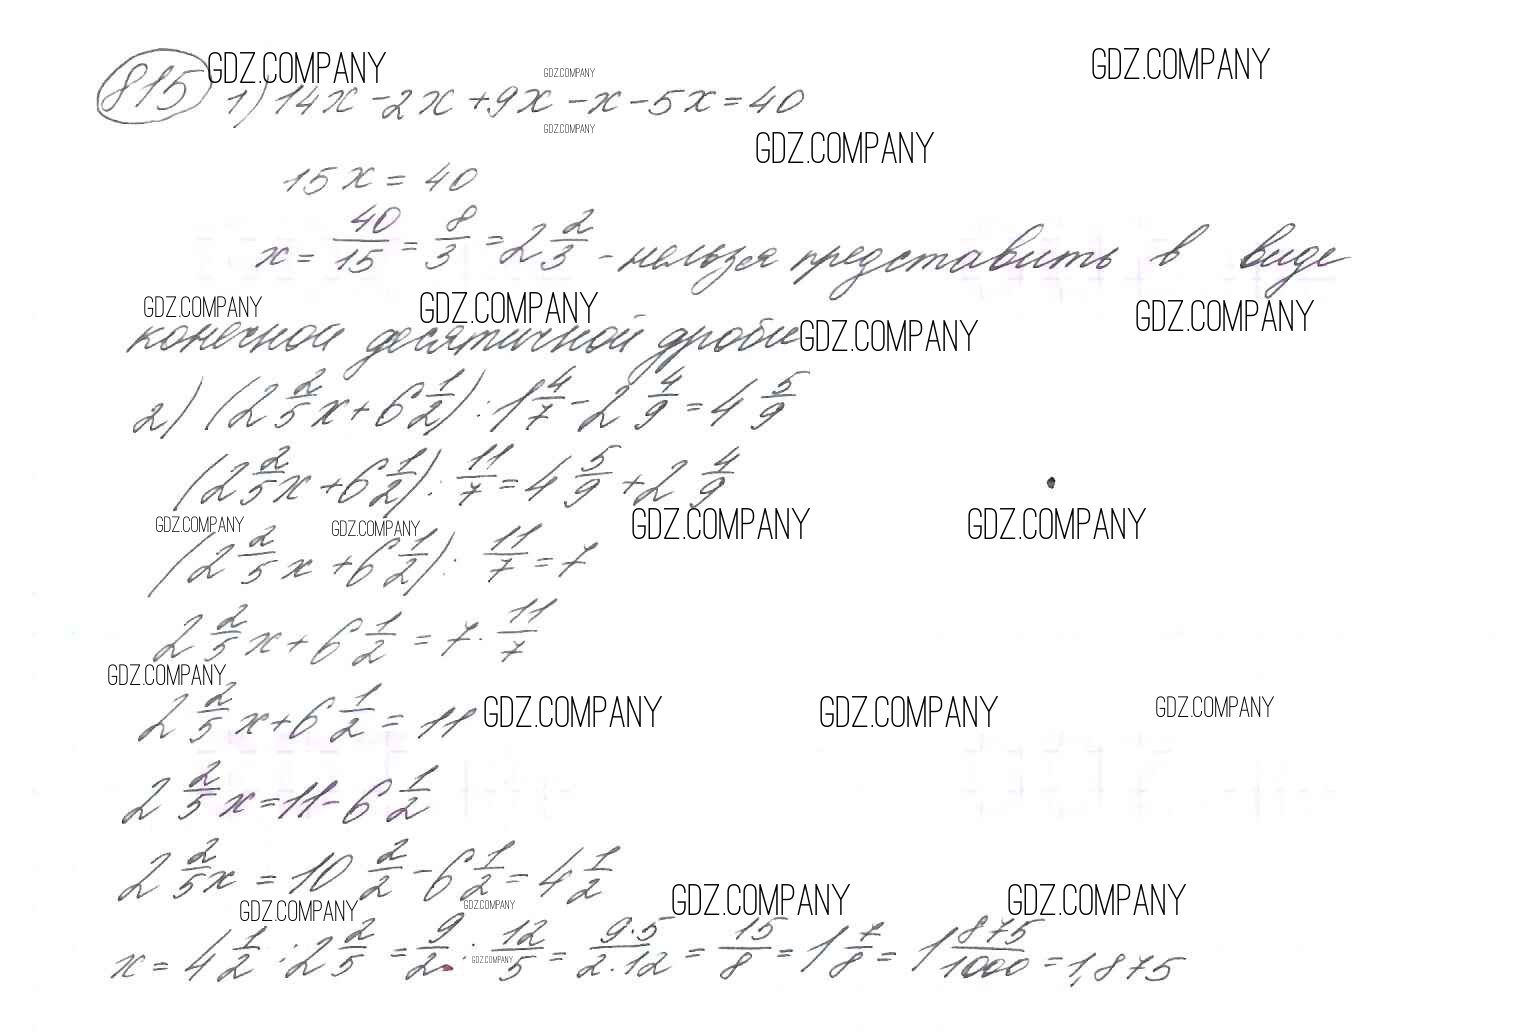 815 GDZ.COMPANY GDZ.COMPANY GDZ.COMPANY
1) 14x - 2x + 9x - x - 5x = 40
GDZ.COMPANY GDZ.COMPANY
15x = 40
x = 40/15 = 8/3 = 2 2/3 - нельзя представить в виде
GDZ.COMPANY GDZ.COMPANY GDZ.COMPANY GDZ.COMPANY
конечной десятичной дроби
2) (2 2/5 x + 6 1/2) : 1 4/7 - 2 4/9 = 4 5/9
(2 2/5 x + 6 1/2) : 11/7 = 4 5/9 + 2 4/9
GDZ.COMPANY GDZ.COMPANY GDZ.COMPANY GDZ.COMPANY
(2 2/5 x + 6 1/2) : 11/7 = 7
2 2/5 x + 6 1/2 = 7 · 11/7
GDZ.COMPANY
2 2/5 x + 6 1/2 = 11 GDZ.COMPANY GDZ.COMPANY GDZ.COMPANY
2 2/5 x = 11 - 6 1/2
2 2/5 x = 10 2/2 - 6 1/2 = 4 1/2
GDZ.COMPANY GDZ.COMPANY GDZ.COMPANY GDZ.COMPANY
x = 4 1/2 : 2 2/5 = 9/2 : 12/5 = 9·5/2·12 = 15/8 = 1 7/8 = 1 875/1000 = 1,875
GDZ.COMPANY